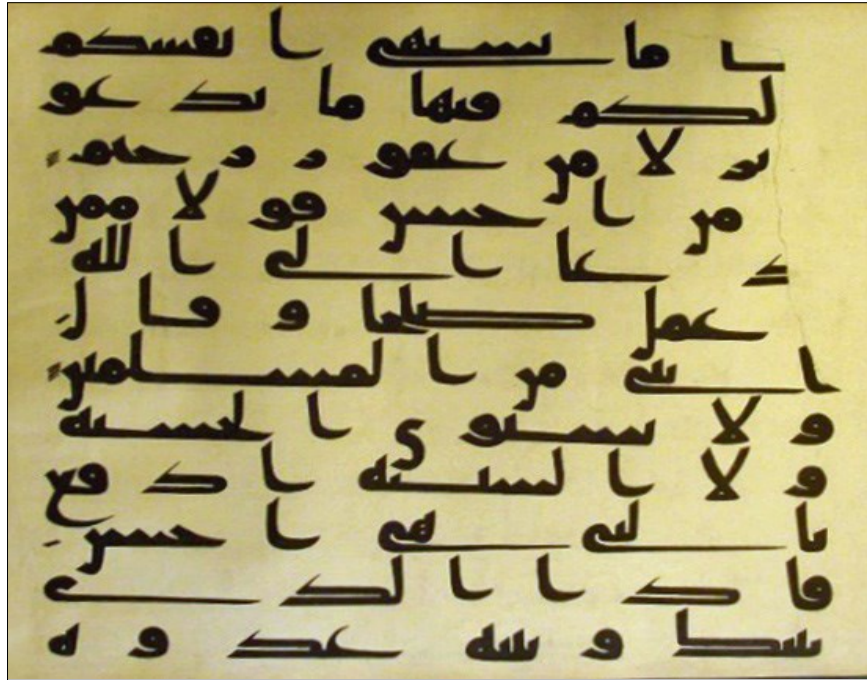 ا ما تشتهي انفسكم
لكم فيها ما تدعو
نزلا من غفور رحيم
من احسن قولا ممن
دعا الى الله
عمل صلحا وقال
انني من المسلمين
ولا تستوي الحسنة
ولا السيئة ادفع
بالتي هي احسن
فاذا الذي
بينك وبينه عدوة